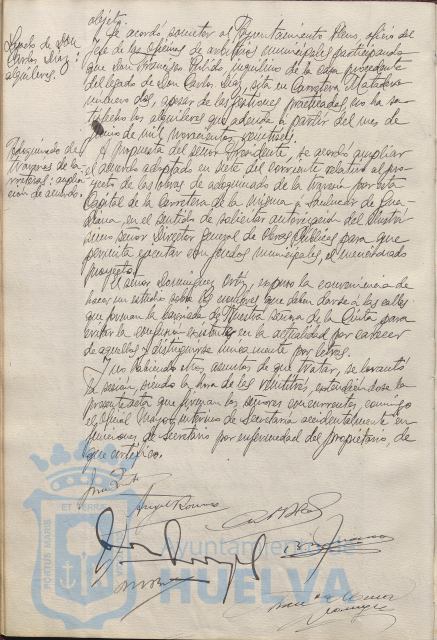 objeto.
Legado de Don
Carlos Diaz:
alquileres.
Se acordó someter al Ayuntamiento Pleno, oficio del
Jefe de la Oficina de arbitrios municipales participando
que Don Francisco Pulido, inquilino de la casa procedente
del legado de Don Carlos Diaz, sita en Carretera Matadero
número dos, apesar de las gestiones practicadas, no ha sa-
tisfecho los alquileres que adeuda a partir del mes de
Junio de mil novecientos veintiseis.
Adoquinado de
travesias de la
carretera: amplia-
ción de acuerdo.
A propuesta del señor Presidente, se acordó ampliar
el acuerdo adoptado en siete del corriente relativo al pro-
yecto de las obras de adoquinado de la travesia por esta
Capital de la Carretera de la misma a Sanlucar de Gua-
diana, en el sentido de solicitar autorización del Ilustrí-
simo señor Director General de Obras Públicas para que
permita ejecutar con fondos municipales, el mencionado
proyecto.
El señor Dominguez Ortiz, expuso la conveniencia de
hacer un estudio sobre los nombres que deban darse á las calles
que forman la barriada de Nuestra Señora de la Cinta para
evitar la confusion existente en la actualidad por carecer
de aquellos y distinguirse únicamente por letras.
Y no habiendo otros asuntos de que tratar, se levantó
la sesión, siendo la hora de las veintitres, extendiendose la
presente acta que firman los señores concurrentes, conmigo
el Oficial Mayor interino de Secretaría accidentalmente en
funciones de Secretario por enfermedad del propietario, de
que certifico.
Angel Romero
PORTUS MARIS ET TERRE CUSTODIA
Ayuntamiento de
HUELVA